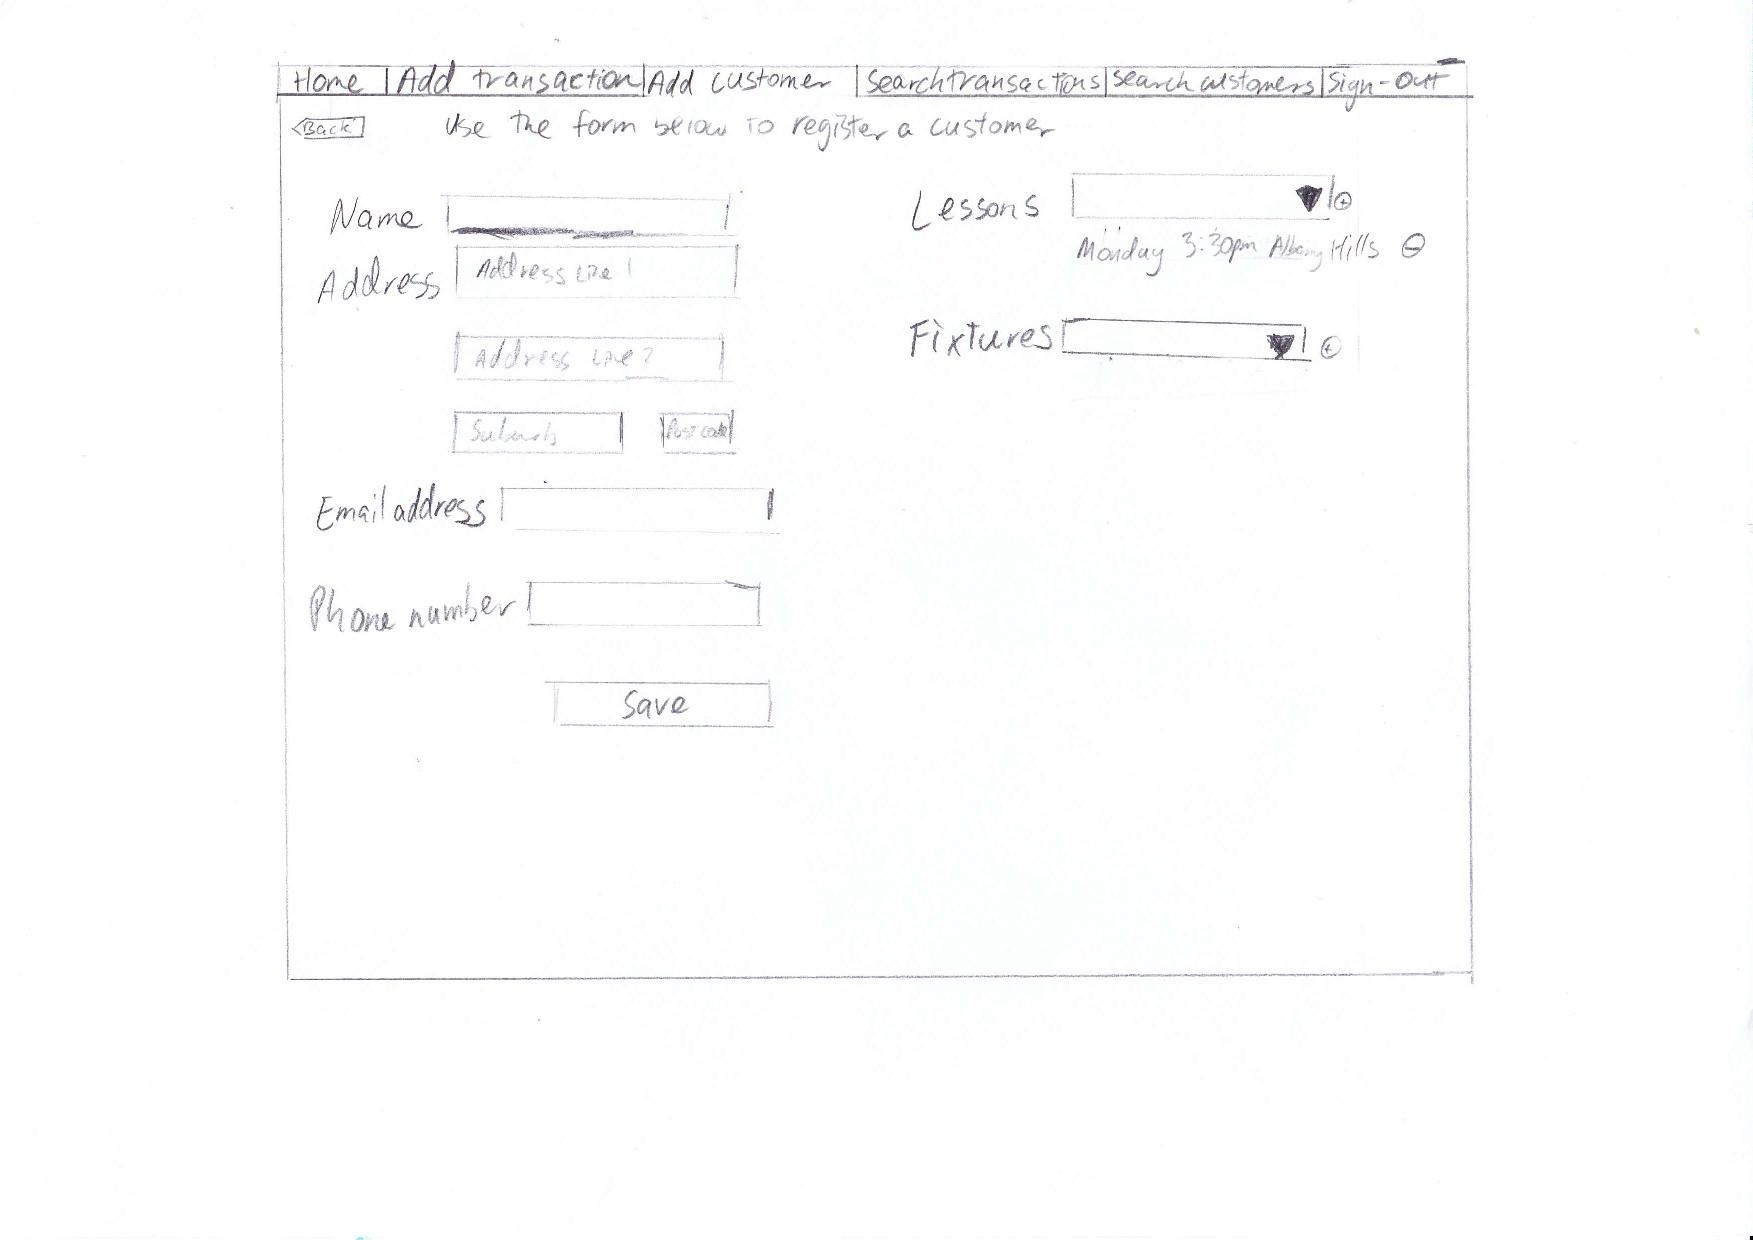 Home Add transaction Add customer Search transactions Search customers Sign-Out
Back Use the form below to register a customer
Name
Address Address Line 1
Address Line 2
Suburb Post code
Email address
Phone number
Save
Lessons
Monday 3:30pm Albany Hills
Fixtures